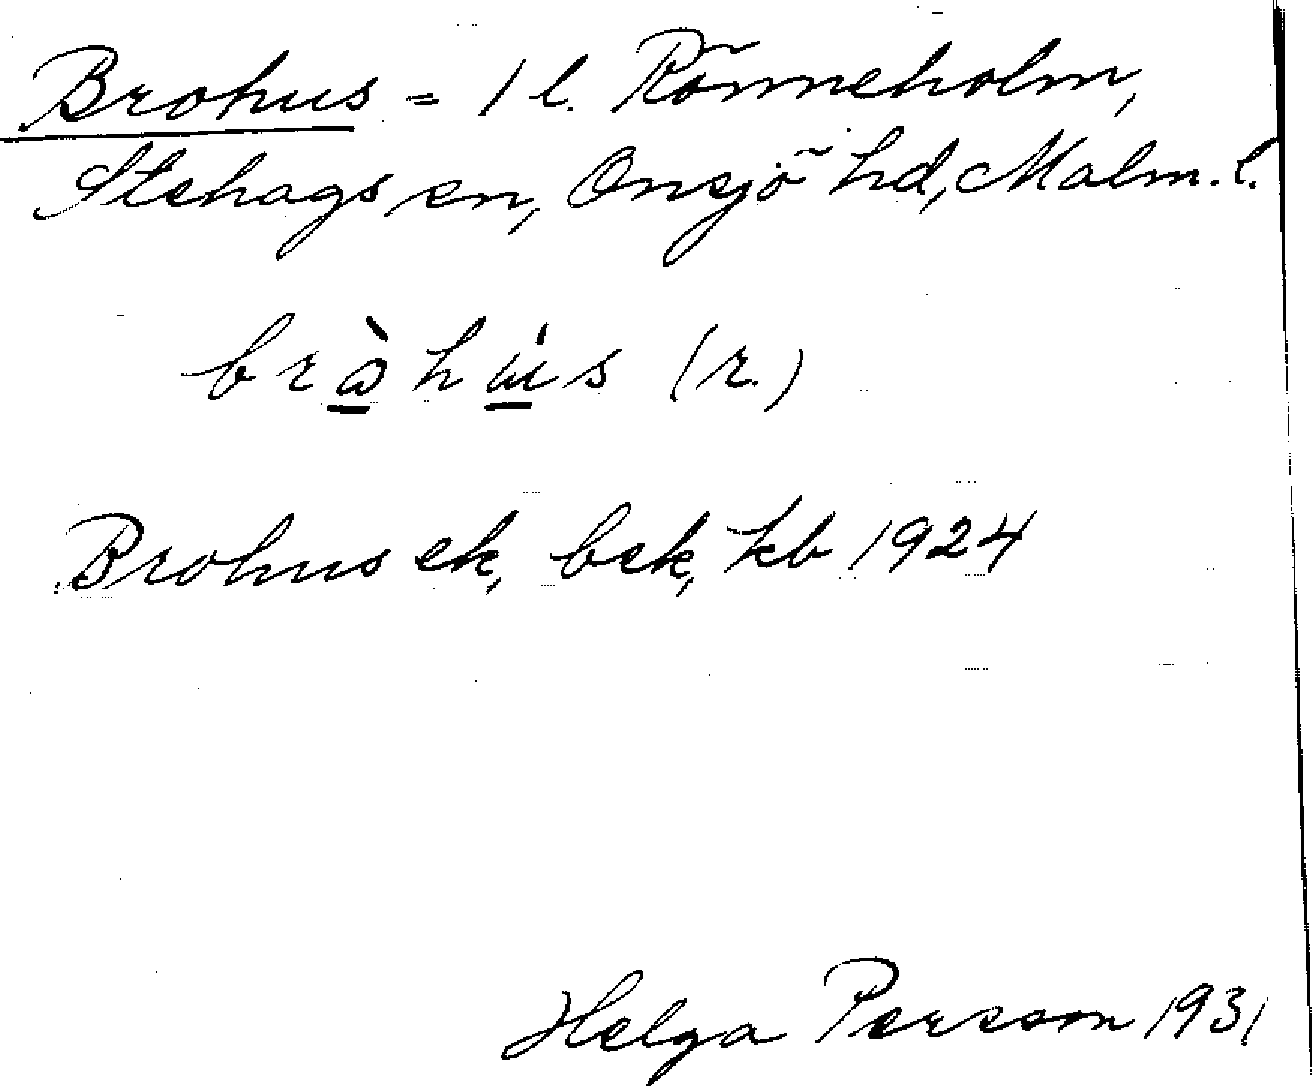 Brohus = 1 l. Rönneholm,
Stehags sn, Onsjö hd, Malm. l.
bràhús (r.)
Brohus ek, bek, kb 1924
Helga Persson 1931